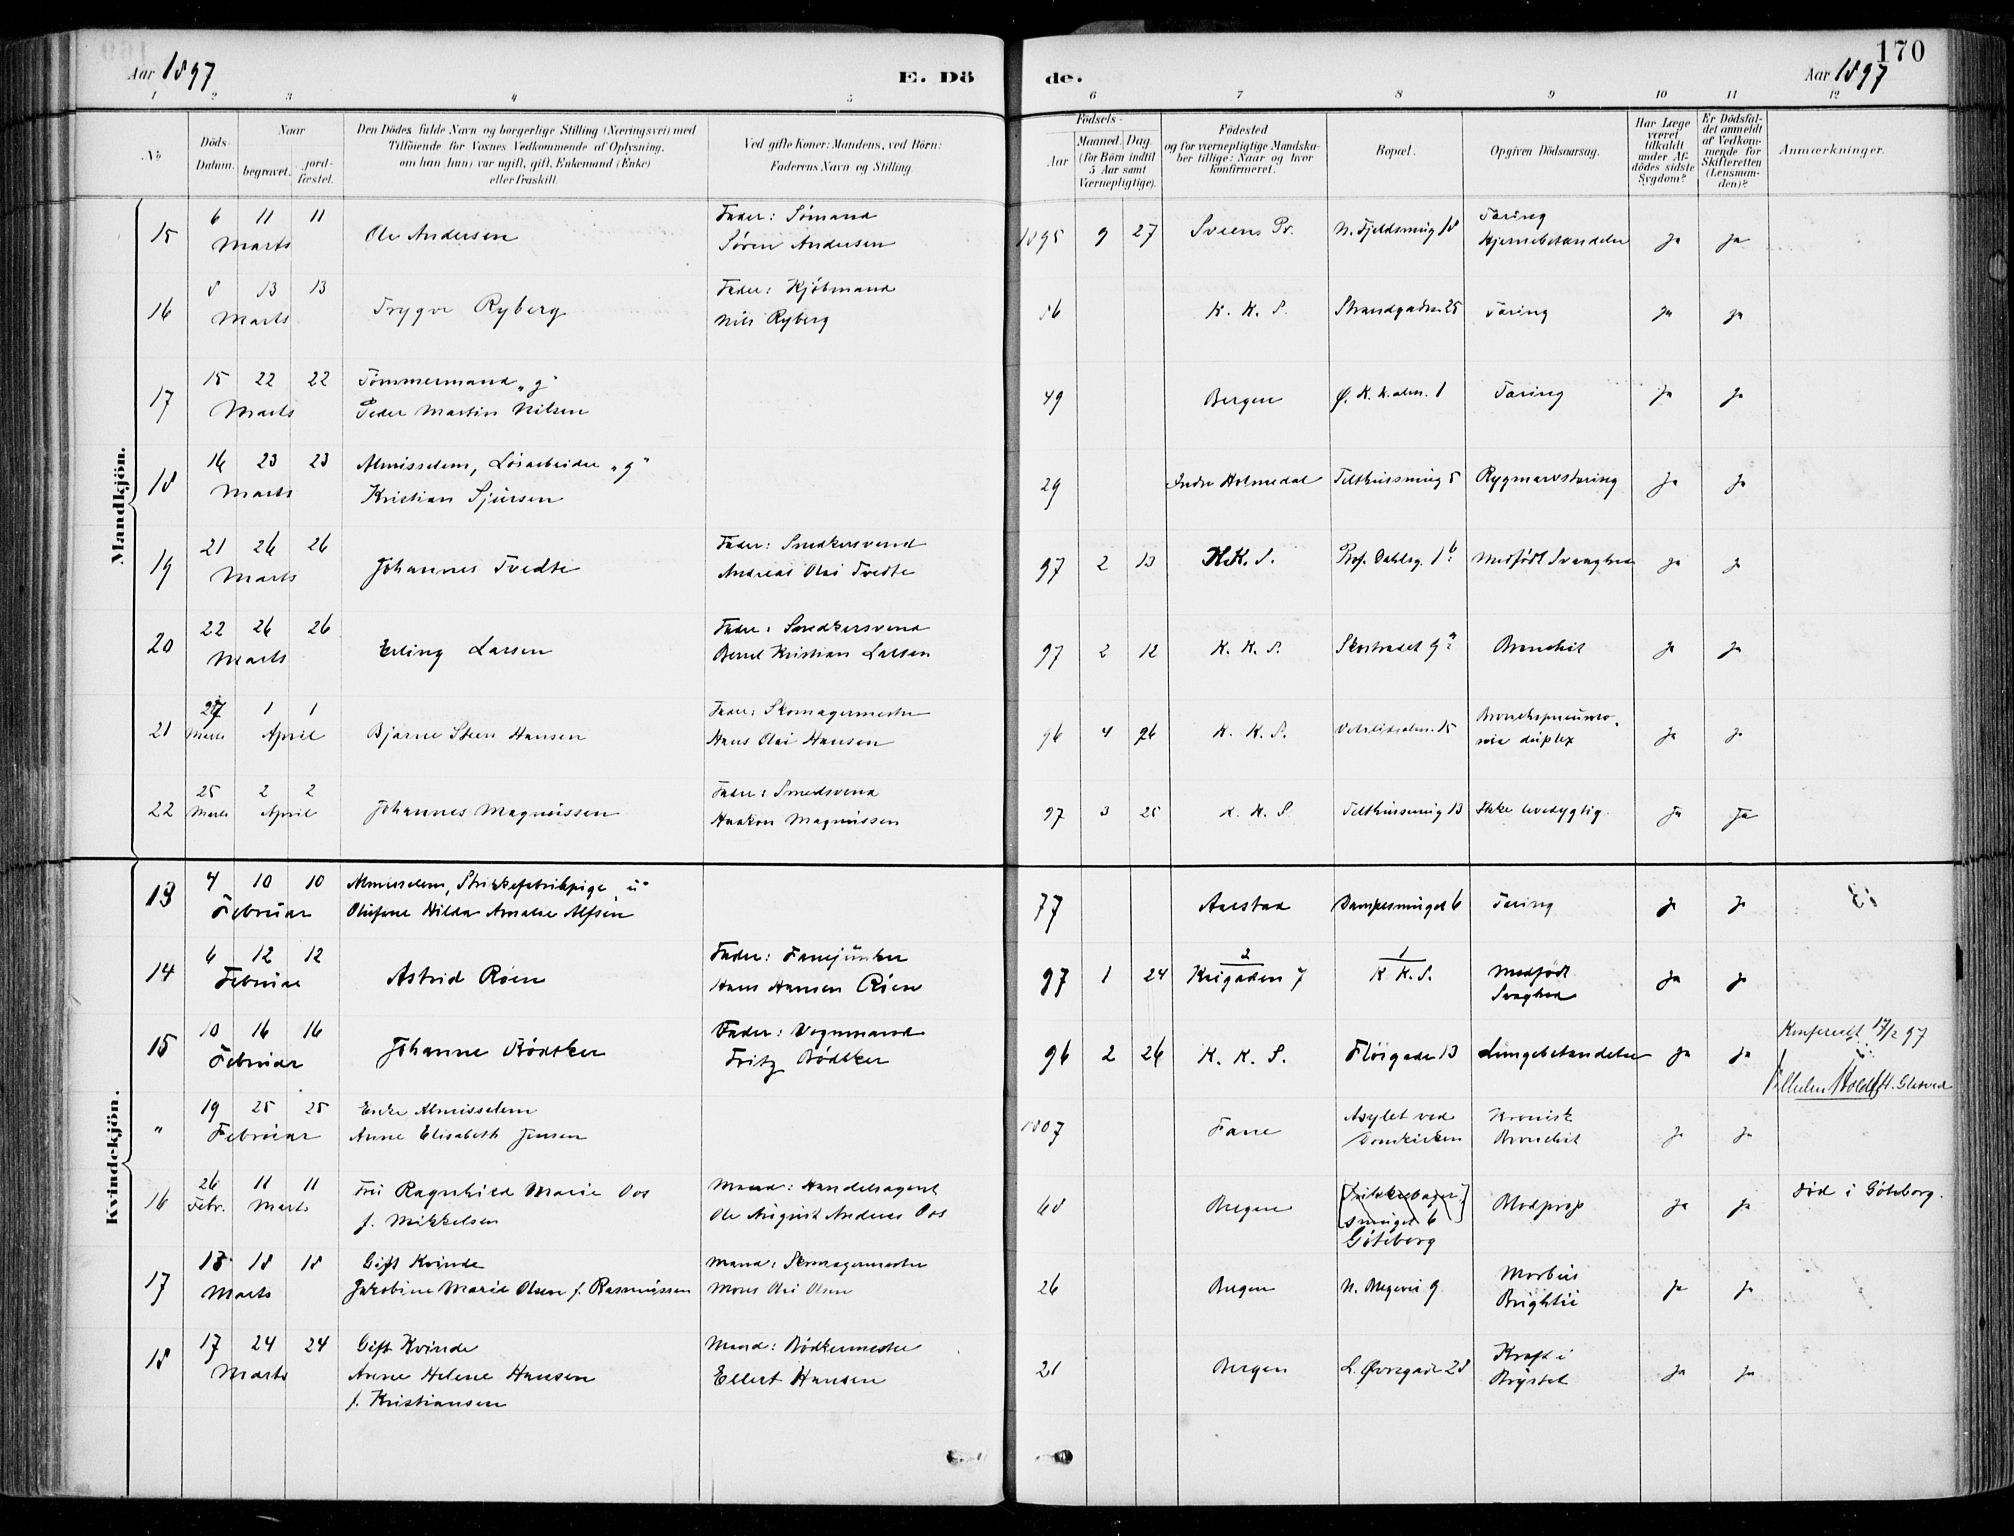 170
Aar 1897 E. Dö de. Aar 1897
1 2 3 4 5 6 7 8 9 10 11 12
No
Döds-Datum.
Naar
begravet.
jord-fæstet.
Den Dödes fulde Navn og borgerlige Stilling (Næringsvei) med
Tilföiende for Voxnes Vedkommende af Oplysning,
om han (hun) var ugift, gift, Enkemand (Enke)
eller fraskilt.
Ved gifte Koner: Mandens, ved Börn:
Faderens Navn og Stilling.
Födsels-
Aar
Maaned. Dag
(for Börn indtil
5 Aar samt
Værnepligtige).
Födested
og for værnepligtige Mandska-
ber tillige: Naar og hvor
konfirmeret.
Bopæl.
Opgiven Dödsaarsag.
Har Læge
været
tilkaldt
under Af-
dödes sidste
Sygdom?
Er Dödsfal-
det anmeldt
af Vedkom-
mende for
Skifteretten
(Lensman-
den)?
Anmærkninger.
Mandkjön.
15 6 11 11 Marts Ole Andersen Fader: Sømand Søren Andersen 1895 9 27 Sveens Pr. N. Fjeldsmug 18 Tæring Hjernebetændelse Ja Ja
16 8 13 13 Marts Trygve Ryberg Fader: Kjøbmand Nils Ryberg 86 K. K. S. Strandgaden 25 Tæring Ja Ja
17 15 22 22 Marts Tømmermand „g" Peder Martin Nilsen 49 Bergen Ø. K. k. alm. 1 Tæring Ja Ja
18 16 23 23 Marts Almisselem, Løsarbeider „g" Kristian Sjursen 29 Indre Holmedal Telthussmug 5 Rygmarvstæring Ja Ja
19 21 26 26 Marts Johannes Tvedte Fader: Snedkersvend Andreas Olai Tvedte 97 2 13 K.K. S. Prof. Dahlsg. 1 b Medfødt Svaghed Ja Ja
20 22 26 26 Marts Erling Larsen Fader: Snedkersvend Bernt Kristian Larsen 97 2 12 K. K. S. Skostrædet 9 a Bronchit Ja Ja
21 27 Marts 1 1 April Bjarne Steen Hansen Fader: Skomagermester Hans Olai Hansen 96 4 26 K. K. S. Vetrlidsalm. 15 Bronchopneumonie duplex Ja Ja
22 25 Marts 2 2 April Johannes Magnussen Fader: Smedsvend Haakon Magnussen 97 3 25 K. K. S. Telthussmug 13 Ikke levedygtig. Ja Ja
Kvindekjön.
13 4 10 10 Februar Almisselem, Strikkefabrikpige „u" Olufine Hilda Amalie Alfsen 77 Aarstad Dampesmuget 6 Tæring Ja Ja
14 6 12 12 Februar Astrid Røen Fader: Fanejunker Hans Hansen Røen 97 1 24 2 Krigaden 7 1 K K. S. Medfødt Svaghed Ja Ja
15 10 16 16 Februar Johanne Bødtker Fader: Vognmand Fritz Bødtker 96 2 26 K. K. S. Fløigade 13 Lungebetændelse Ja Ja Konfereret 17/2 97
" 19 25 25 Februar Enke Almisselem Anne Elisabeth Jensen 1807 Fane Asylet ved Domkirken Kronisk Bronchit Ja Ja
16 26 Febr. 11 11 Marts Fru Ragnhild Marie Oos f. Mikkelsen Mand: Handelsagent Ole August Andreas Oos 68 Bergen smuget 6 Göteborg Blodprop Ja Ja død i Göteborg.
17 13 18 18 Marts Gift Kvinde Jakobine Marie Olsen f. Rasmussen Mand: Skomagermester Mons Olai Olsen 26 Bergen N. Blegevei 9 Morbus Brightii Ja Ja
18 17 24 24 Marts Gift Kvinde Anne Helene Hansen f. Kristiansen Mand: Bødkermester Ellert Hansen 21 Bergen L. Øvregade 28 Kræft i Brystet Ja Ja